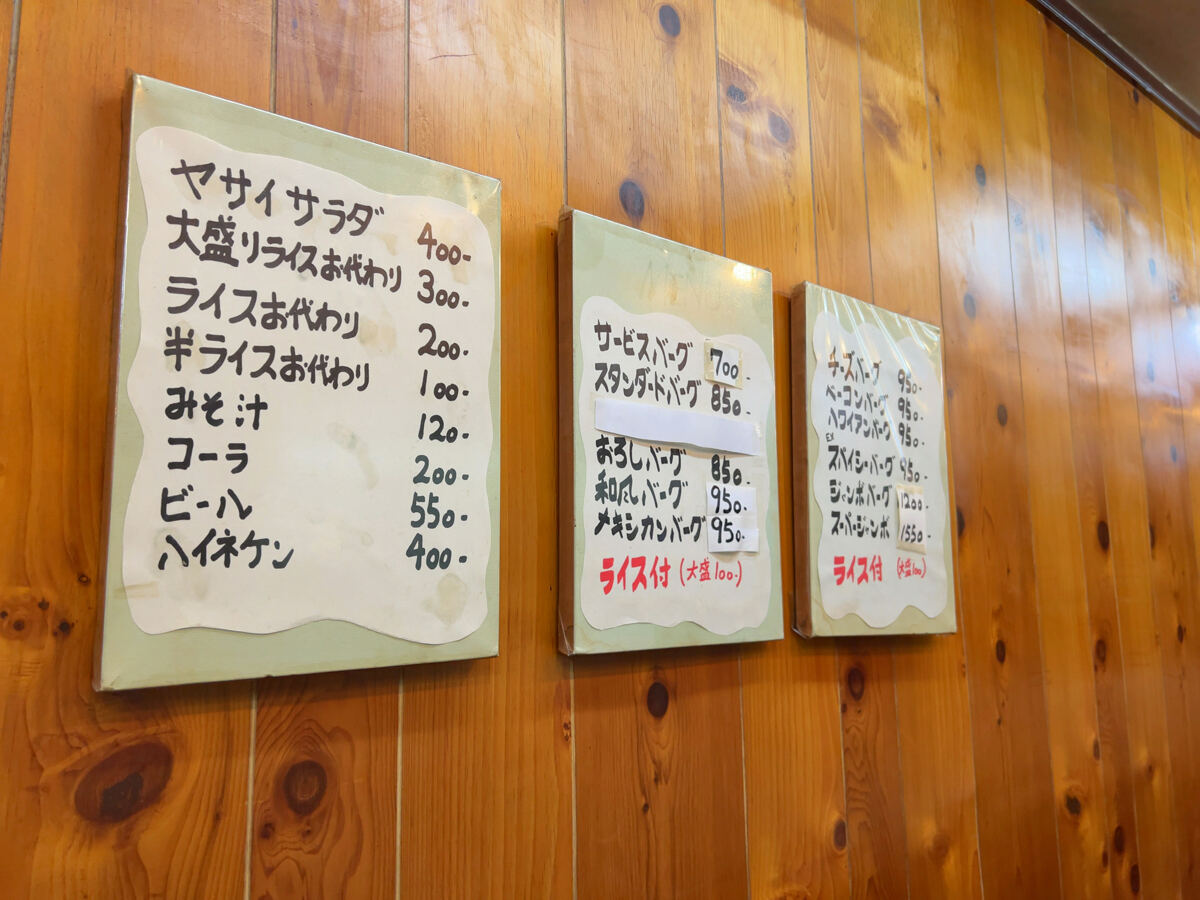 ヤサイサラダ 400-
大盛りライスお代わり 300-
ライスお代わり 200-
半ライスお代わり 100-
みそ汁 120-
コーラ 200-
ビール 550-
ハイネケン 400-
サービスバーグ 700
スタンダードバーグ 850-
おろしバーグ 850-
和風バーグ 950-
メキシカンバーグ 950-
ライス付 (大盛100-)
チーズバーグ 950-
ベーコンバーグ 950-
ハワイアンバーグ 950-
EX
スパイシーバーグ 950-
ジャンボバーグ 1200-
スーパージャンボ 1550-
ライス付 (大盛100)